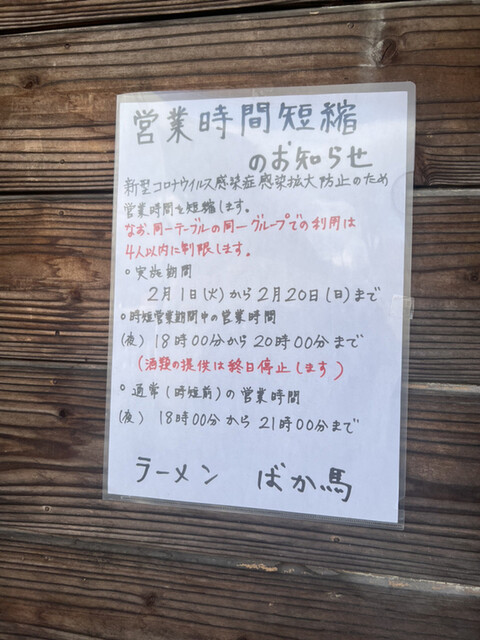 営業時間短縮
のお知らせ
新型コロナウイルス感染症感染拡大防止のため
営業時間を短縮します。
なお、同一テーブルの同一グループでの利用は
4人以内に制限します。
○実施期間
2月1日(火)から2月20日(日)まで
○時短営業期間中の営業時間
(夜) 18時00分から20時00分まで
(酒類の提供は終日停止します)
○通常(時短前)の営業時間
(夜) 18時00分から21時00分まで
ラーメン ばか馬